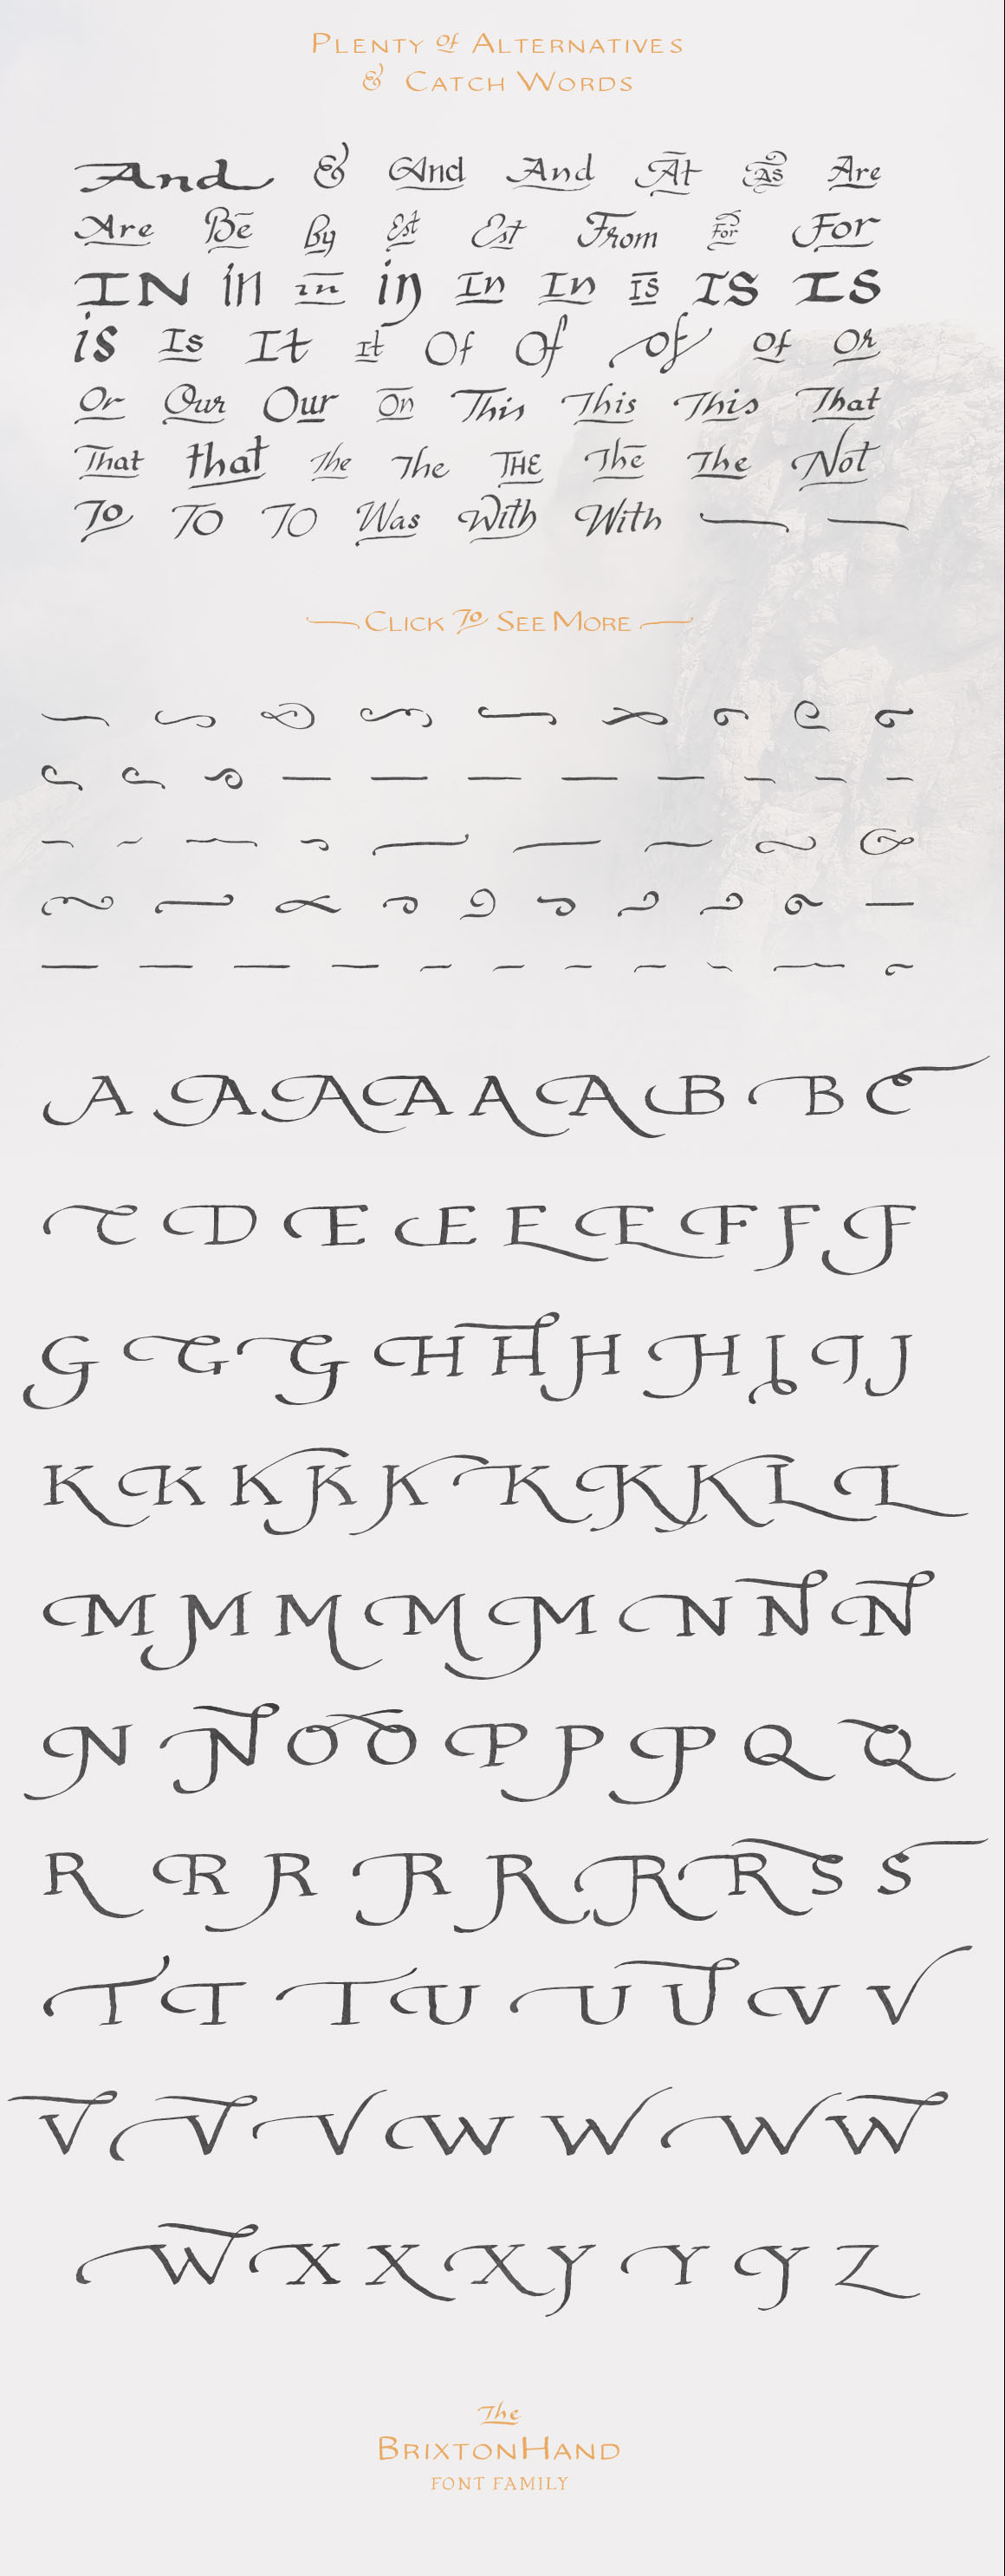 PLENTY of ALTERNATIVES
& CATCH WORDS
And & And And At As Are
Are Be By Est Est From For For
IN in in in In In IS IS IS
is Is It it Of Of of of Or
Or Our Our On This This This That
That that The The THE The The Not
To TO TO Was With With
CLICK To SEE MORE
A A A A A A B B C
C D E E E E F F F
G G G H H H H I J J
K K K K K K K K L L
M M M M M N N N
N N O O P P P Q Q
R R R R R R R S S
T T T U U U V V
V V V W W W W
W X X X Y Y Y Z
The
BRIXTONHAND
FONT FAMILY